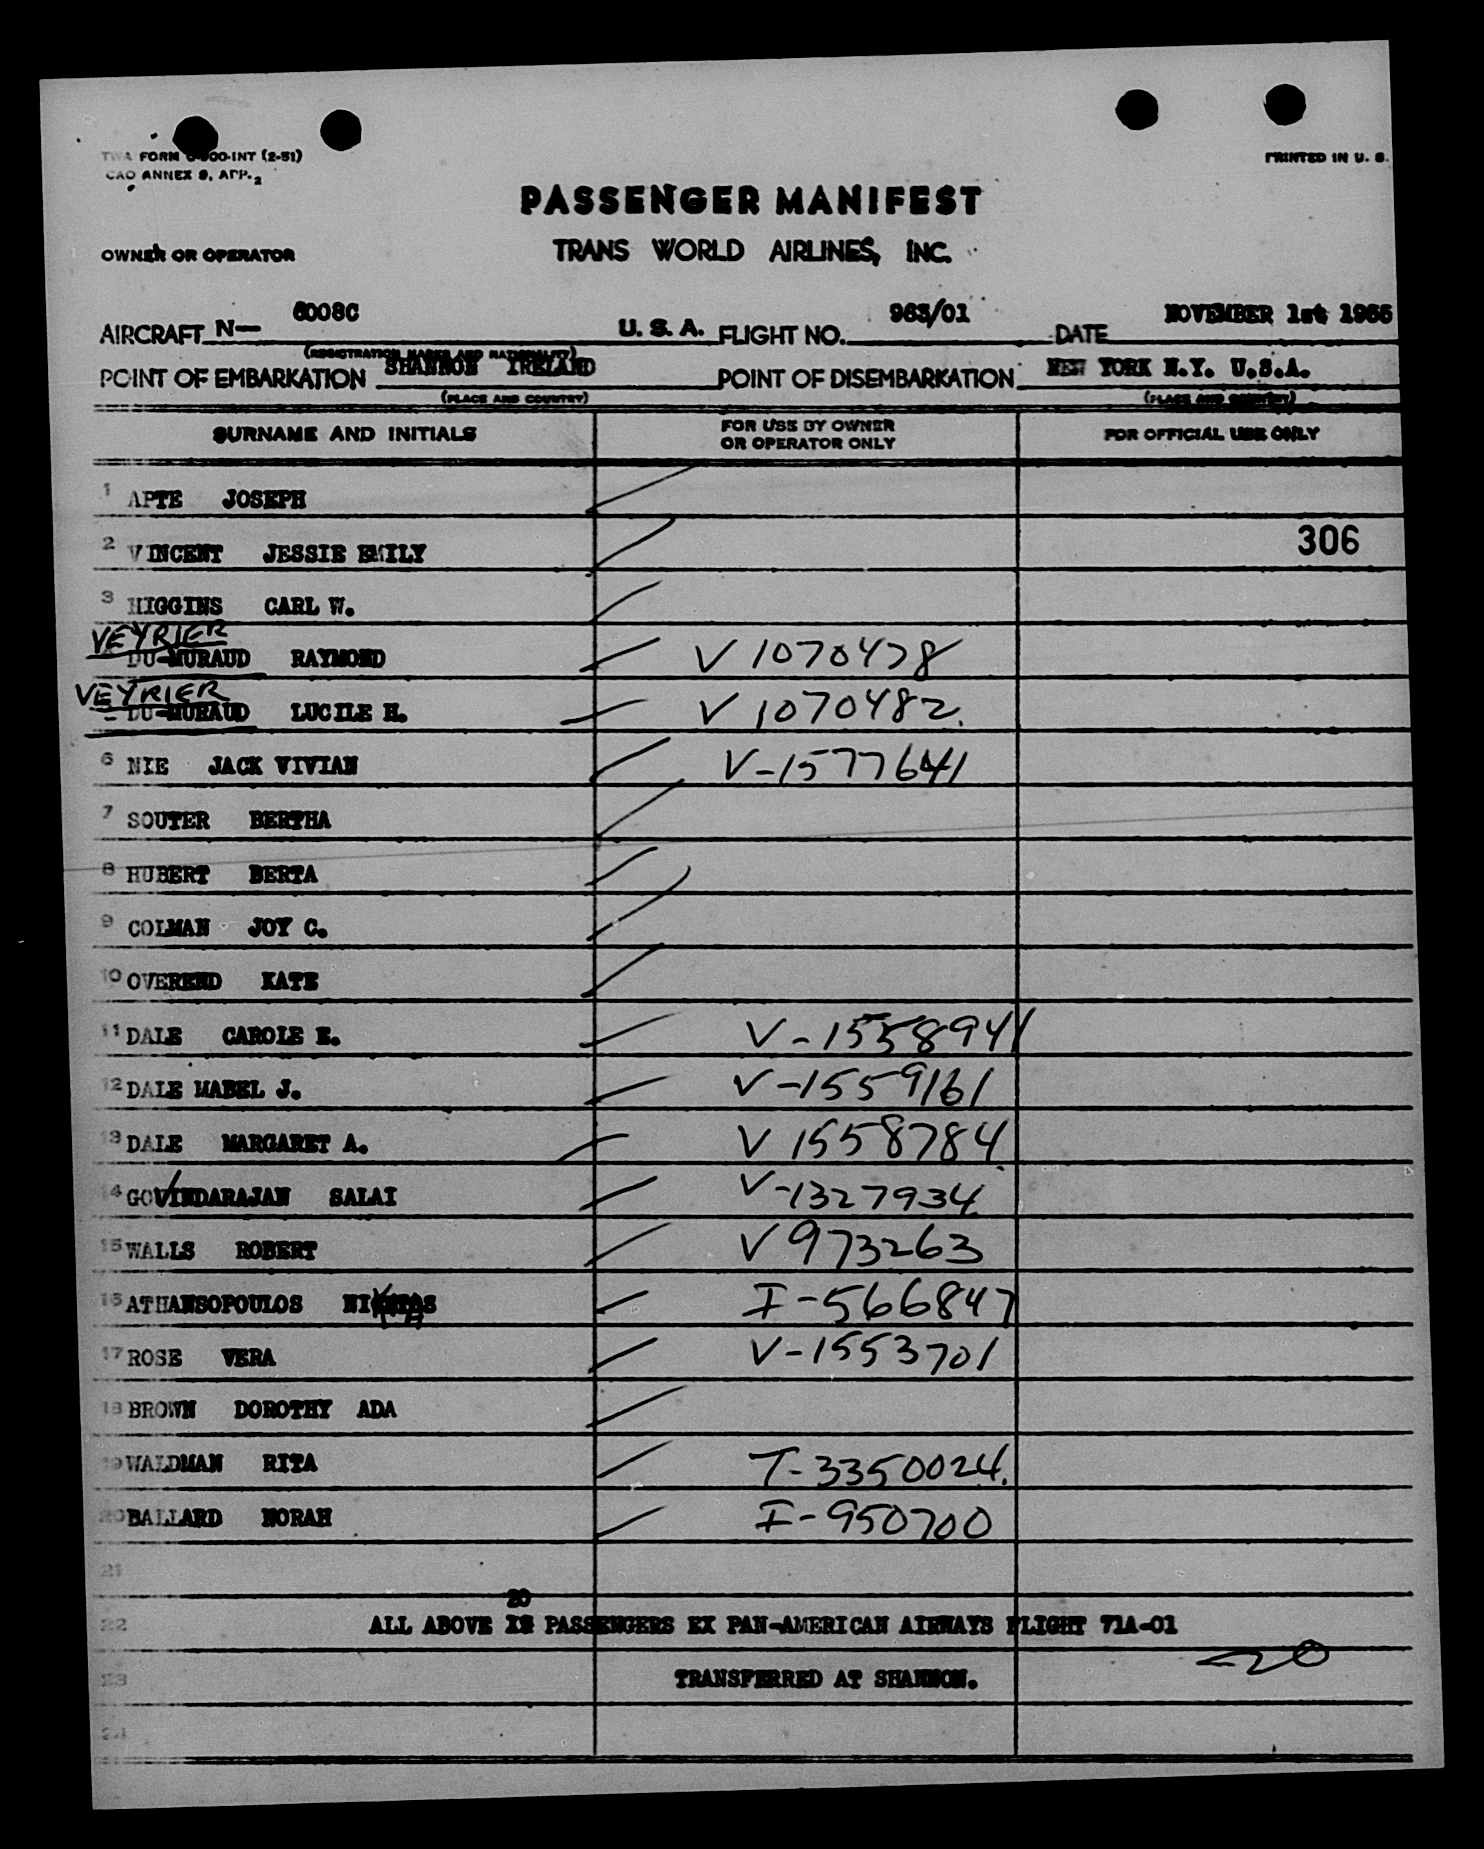 TWA FORM -INT (2-51)
CAO ANNEX 9, APP. 2
PRINTED IN U. S.
PASSENGER MANIFEST
OWNER OR OPERATOR TRANS WORLD AIRLINES, INC.
AIRCRAFT N— 6008C U. S. A. FLIGHT NO. 963/01 DATE NOVEMBER 1st
(REGISTRATION MARKS AND NATIONALITY)
POINT OF EMBARKATION SHANNON IRELAND POINT OF DISEMBARKATION NEW YORK N.Y. U.S.A.
(PLACE AND COUNTRY) (PLACE AND COUNTRY)
SURNAME AND INITIALS FOR USE BY OWNER OR OPERATOR ONLY FOR OFFICIAL USE ONLY
1 APTE JOSEPH
2 VINCENT JESSIE EMILY 306
3 HIGGINS CARL W.
VEYRIER
DU-MURAUD RAYMOND V 1070478
VEYRIER
DU-MURAUD LUCILE H. V 1070482.
6 NIE JACK VIVIAN V-1577641
7 SOUTER BERTHA
8 HUBERT BERTA
9 COLMAN JOY C.
10 OVEREND KATE
11 DALE CAROLE E. V-1558941
12 DALE MABEL J. V-1559161
13 DALE MARGARET A. V 1558784
14 GOVINDARAJAN SALAI V-1327934
15 WALLS ROBERT V 973263
16 ATHANSOPOULOS I-566847
17 ROSE VERA V-1553701
18 BROWN DOROTHY ADA
19 WALDMAN RITA T-3350024.
20 BALLARD NORAH I-950700
21
20
22 ALL ABOVE PASSENGERS EX PAN-AMERICAN AIRWAYS FLIGHT 71A-01
20
23 TRANSFERRED AT SHANNON.
24